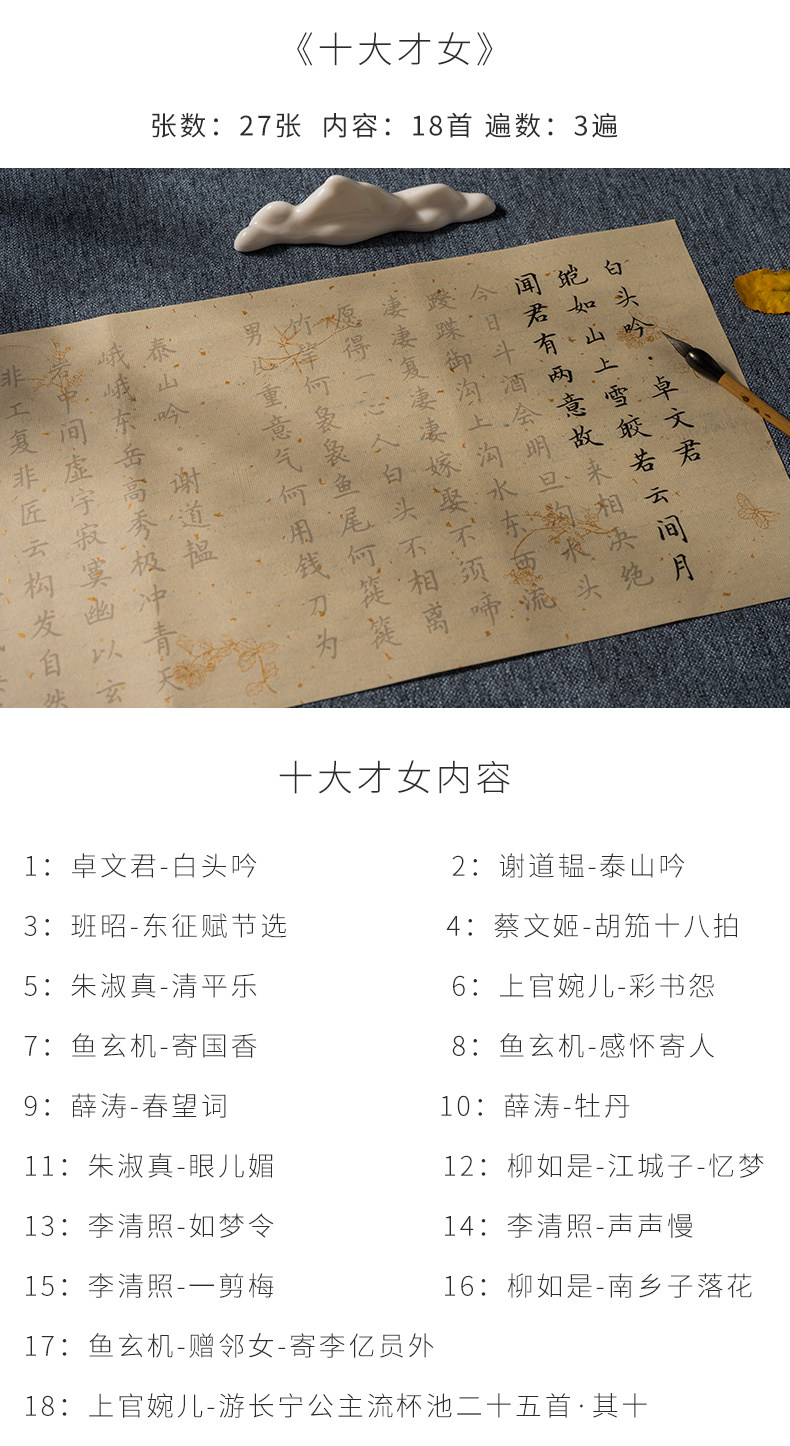 《十大才女》
张数：27张 内容：18首 遍数：3遍
白头吟·卓文君
皑如山上雪皎若云间月
闻君有两意故来相决绝
今日斗酒会明旦沟水头
躞蹀御沟上沟水东西流
凄凄复凄凄嫁娶不须啼
愿得一心人白头不相离
竹竿何袅袅鱼尾何簁簁
男儿重意气何用钱刀为
泰山吟·谢道韫
峨峨东岳高秀极冲青天
岩中间虚宇寂寞幽以玄
非工复非匠云构发自然
十大才女内容
1：卓文君-白头吟
2：谢道韫-泰山吟
3：班昭-东征赋节选
4：蔡文姬-胡笳十八拍
5：朱淑真-清平乐
6：上官婉儿-彩书怨
7：鱼玄机-寄国香
8：鱼玄机-感怀寄人
9：薛涛-春望词
10：薛涛-牡丹
11：朱淑真-眼儿媚
12：柳如是-江城子-忆梦
13：李清照-如梦令
14：李清照-声声慢
15：李清照-一剪梅
16：柳如是-南乡子落花
17：鱼玄机-赠邻女-寄李亿员外
18：上官婉儿-游长宁公主流杯池二十五首·其十